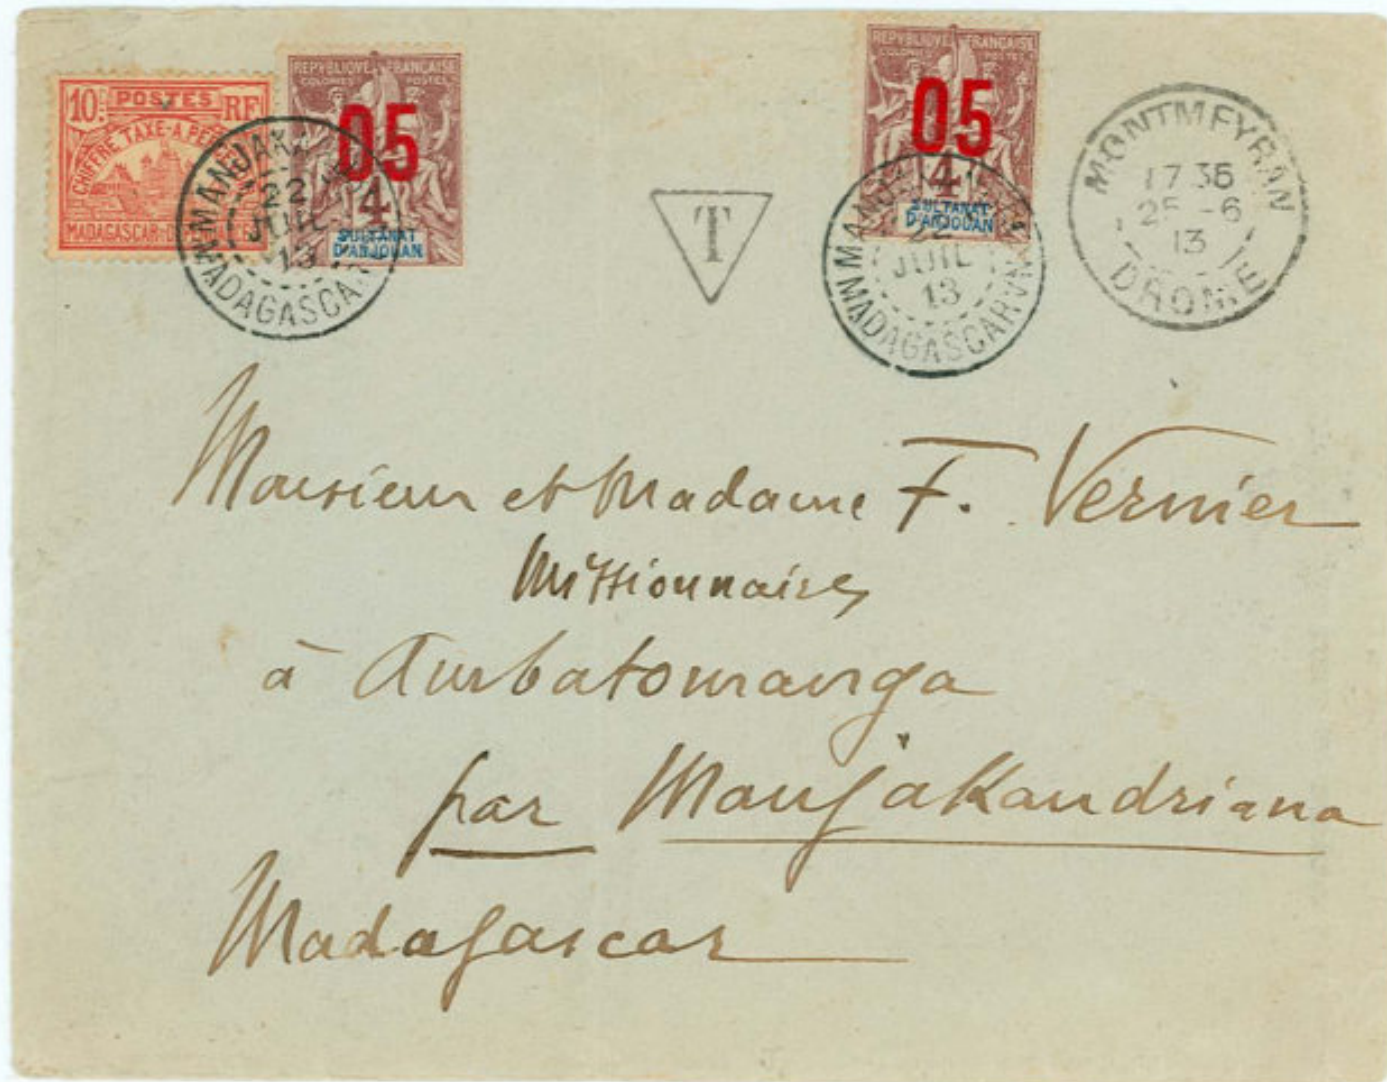 10c POSTES RF
CHIFFRE TAXE-A PE
MADAGASCAR-D
REPVBLIQVE FRANÇAISE
COLONIES POSTES
05
4
SULTANAT
D'ANJOUAN
MANJAKA
22
JUIL
13
MADAGASCAR
T
REPVBLIQVE FRANÇAISE
COLONIES POSTES
05
4
SULTANAT
D'ANJOUAN
22
JUIL
13
MADAGASCAR
MONTMEYRAN
17 35
25 -6
13
DROME
Monsieur et Madame F. Vernier
Missionnaires
à Ambatomanga
par Manjakandriana
Madagascar